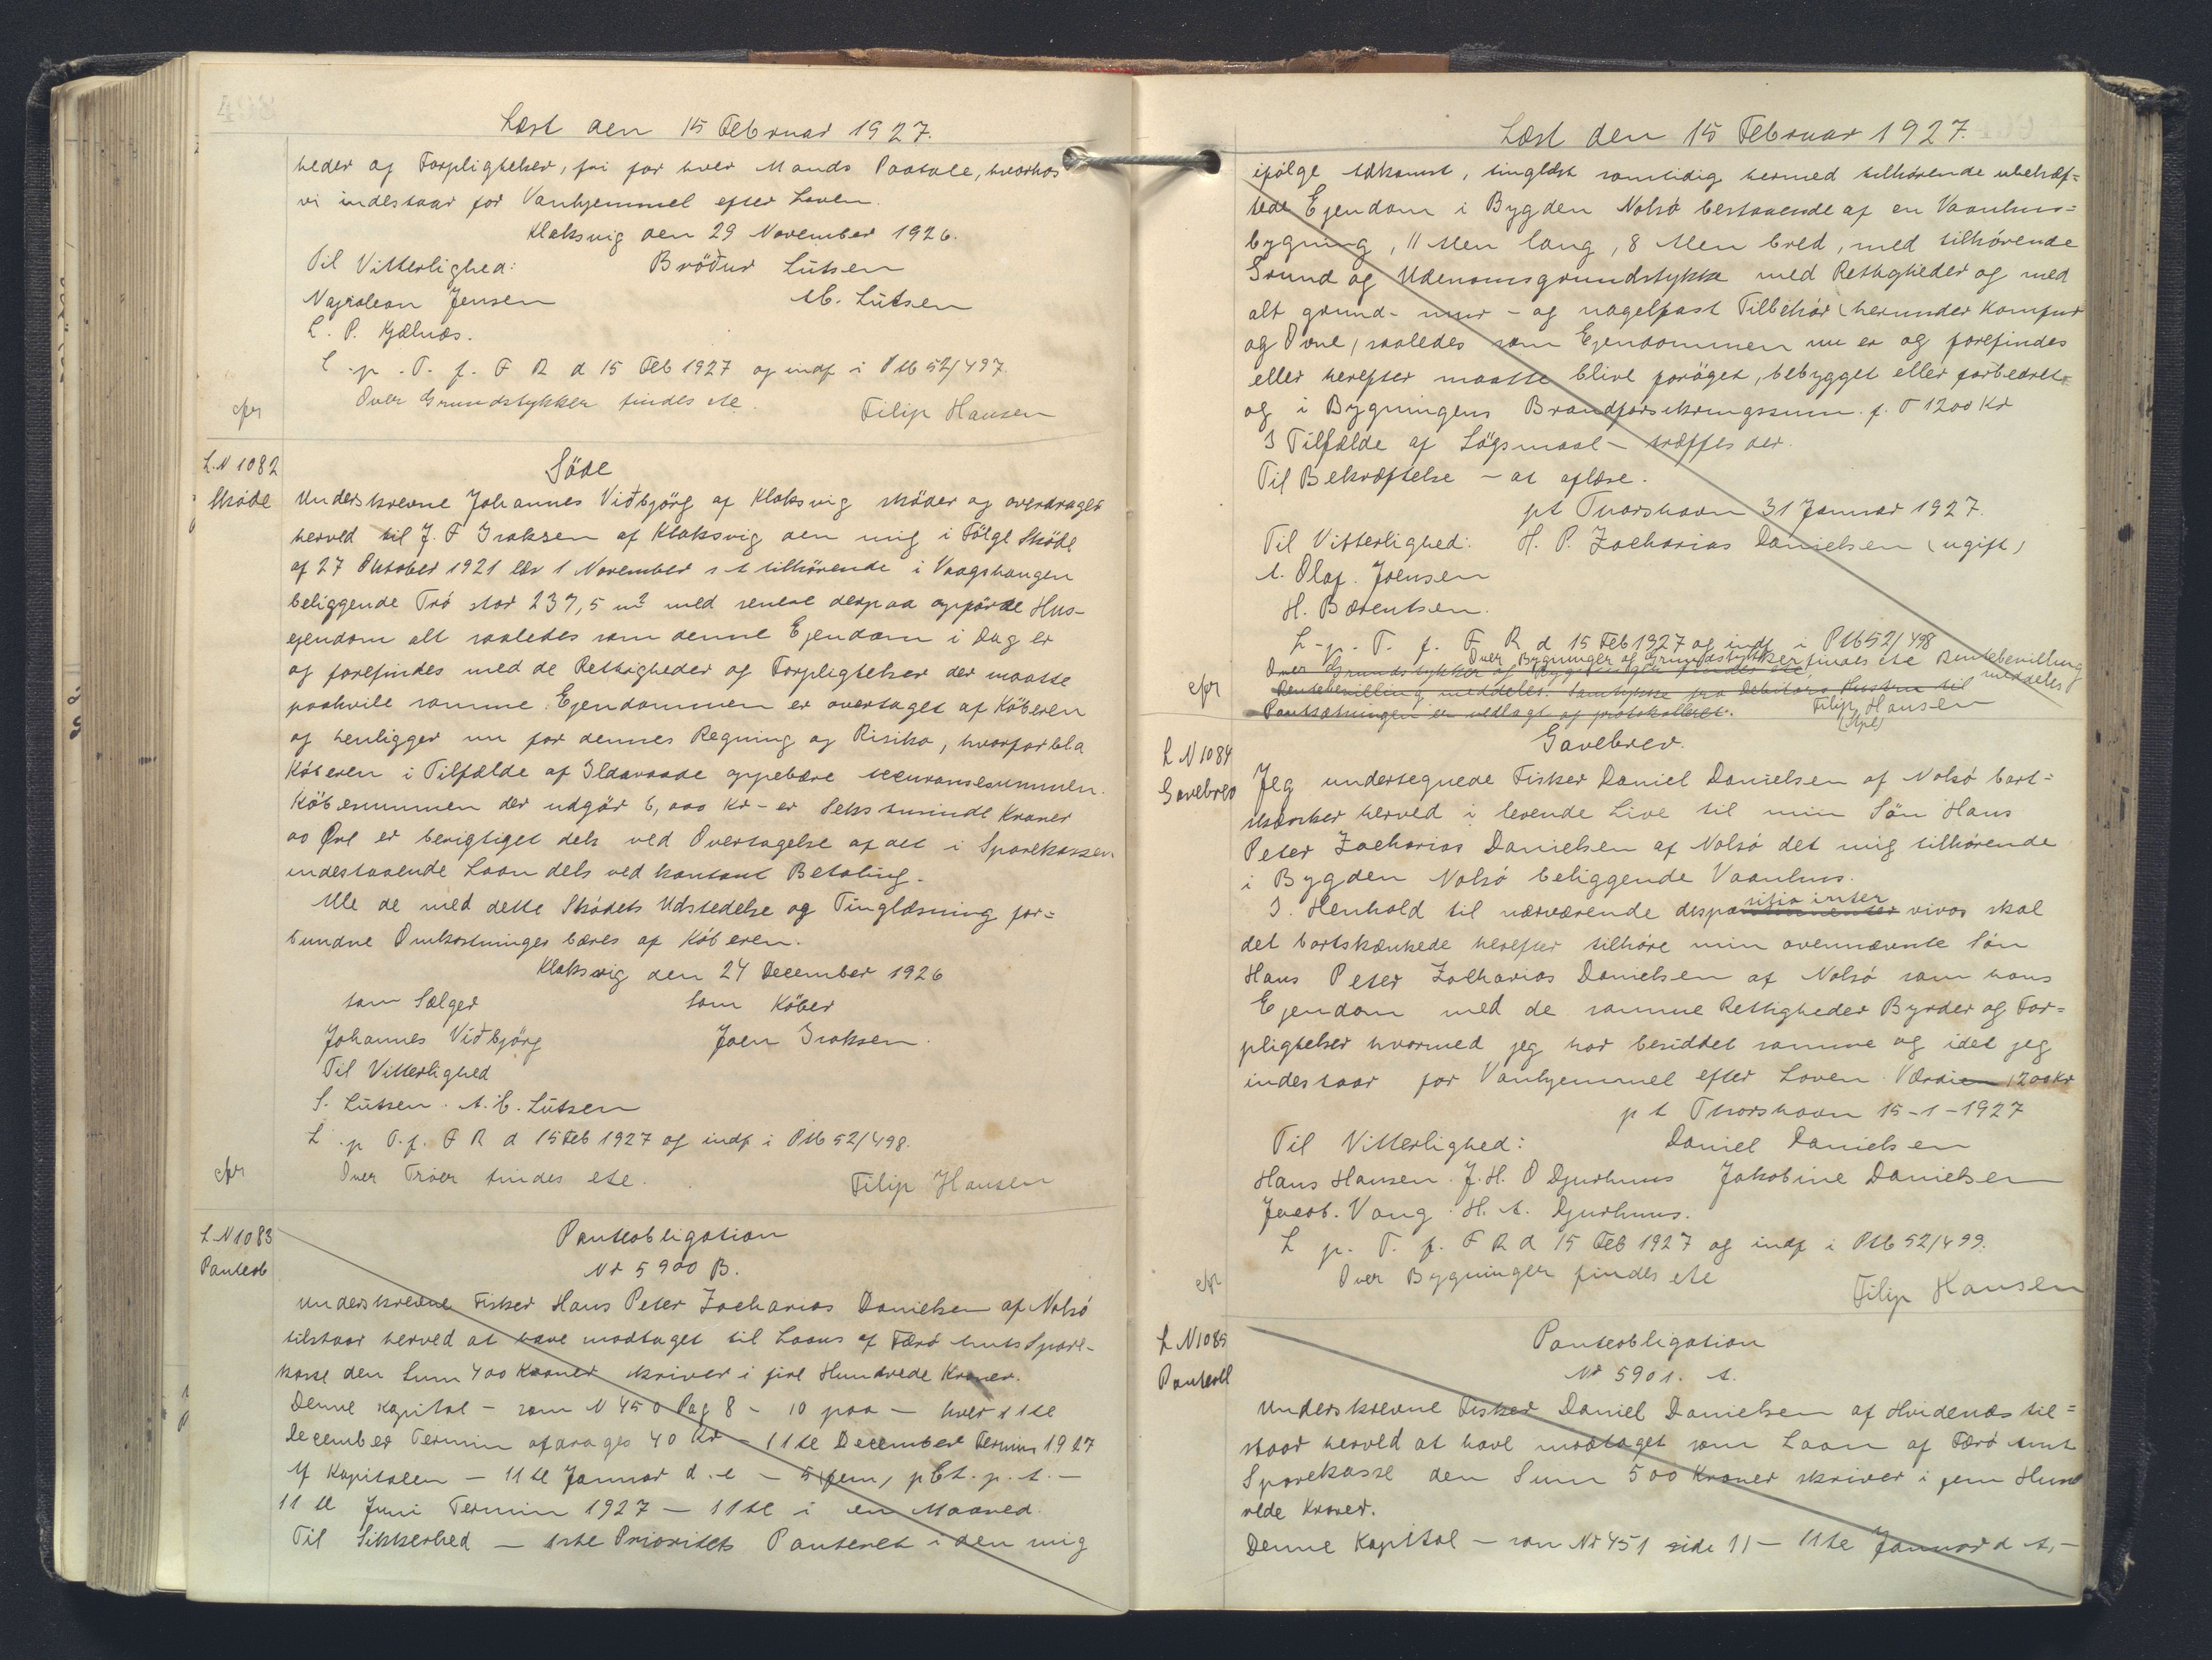 Læst den 15 Februar 1927.
heder og Forpligtelser, fri for hver Mands Paatale, hvorhos
vi indestaar for Vanhjemmel efter Loven.
Klaksvig den 29 November 1926.
Til Vitterlighed: Bröður Lützen
Napoleon Jensen M. Lützen
L. P. Kjølnæs.
L. p. T. f. F R d 15 Feb 1927 og indf i PM 52/497.
Over Grundstykker findes ete.
cfr Filip Hansen
L. N 1082 Söde
Sköde Underskrevne Johannes Viðbjörg af Klaksvig sköder og overdrager
herved til J. F Isaksen af Klaksvig den mig i Fölge Sköde
af 27 Oktober 1921 læs 1 November s t tilhörende i Vaagshaugen
beliggende Trö stor 237,5 m² med senere derpaa opförde Hus-
ejendom alt saaledes som denne Ejendom i Dag er
og forefindes med de Rettigheder og Forpligtelser der maatte
paahvile samme. Ejendommen er overtaget af Köberen
og henligger nu for dennes Regning og Risiko, hvorfor bl a
Köberen i Tilfælde af Ildsvaade oppebære Accuransesummen.
Köbesummen der udgör 6,000 Kr - er Seks tusinde Kroner
00 Øre er berigtiget dels ved Overtagelse af det i Sparekassen
indestaaende Laan dels ved kontant Betaling.
Alle de med dette Sködets Udstedelse og Tinglæsning for=
bundne Omkostninger bæres af Köberen.
Klaksvig den 24 December 1926
som Sælger Som Köber
Johannes Viðbjörg Joen Isaksen.
Til Vitterlighed
S. Lützen. A. C. Lützen
L. p T. f. F R d 15 Feb 1927 og indf i PM 52/498.
cfr Over Tröer findes ete. Filip Hansen
L. N 1083 Panteobligation
Panteob Nr 5900 B.
Underskrevne Fisker Hans Peter Zacharias Danielsen af Nolsö
tilstaar herved at have modtaget til Laans af Færö Amts Spare-
kasse den Sum 400 Kroner skriver i fire Hundrede Kroner.
Denne Kapital - som N 450 Pag 8 - 10 paa - hver 11te
December Termin afdrages 40 Kr - 11te December Termin 1927
Af Kapitalen - 11te Januar d. e - 5 (fem) pCt. p. A. -
11te Juni Termin 1927 - 11te i en Maaned.
Til Sikkerhed - 1ste Prioritets Panteret i den mig
Læst den 15 Februar 1927.
ifölge Adkomst, tinglæst samtidig hermed tilhörende ubehæf=
tede Ejendom i Bygden Nolsö bestaaende af en Vaanhus=
bygning, 11 Alen lang, 8 Alen bred, med tilhörende
Grund og Udenomsgrundstykke med Rettigheder og med
alt grund- mur- og nagelfast Tilbehör (herunder Komfur
og Ovne) saaledes som Ejendommen nu er og forefindes
eller herefter maatte blive foröget, bebygget eller forbedret=
og i Bygningens Brandforsikringssum. f. T 1200 Kr
I Tilfælde af Sögsmaal - træffes der.
Til Bekræftelse - at aflæse.
pt Thorshavn 31 Januar 1927.
Til Vitterlighed: H. P. Zacharias Danielsen (ugift)
A. Olaf. Joensen
H. Bærentsen.
L. p. T. f. F R d 15 Feb 1927 og indf i PM 52/498
Over Bygninger og Grundstykker findes ete Rentebevilling
Over Grundstykker og Bygninger findes ete, meddeles
cfr Rentebevilling meddeles. Samtykke fra Debitors Hustru til
Pantsætningen er vedlagt og protokolleret. Filip Hansen
L N 1084 Gavebrev.
Gavebrev Jeg undertegnede Fisker Daniel Danielsen af Nolsö bort=
skænker herved i levende Live til min Sön Hans
Peter Zacharias Danielsen af Nolsö det mig tilhörende
i Bygden Nolsö beliggende Vaanhus.
sitio inter
I Henhold til nærværende dispo vivos skal
det bortskænkede herefter tilhöre min ovennævnte Sön
Hans Peter Zacharias Danielsen af Nolsö som hans
Ejendom med de samme Rettigheder Byrder og For=
pligtelser hvormed jeg har besiddet samme og idet jeg
indestaar for Vanhjemmel efter Loven. Værdien 1200 Kr
pt Thorshavn 15-1-1927
Til Vitterlighed: Daniel Danielsen
Hans Hansen. J. H. O Djurhuus Jakobine Danielsen
Jacob. Vang. H. A. Djurhuus.
L p. T. f. F R d 15 Feb 1927 og indf i PM 52/499.
cfr Over Bygninger findes ete Filip Hansen
L N 1085 Panteobligation
Panteobl Nr 5901. A.
Underskrevne Fisker Daniel Danielsen af Hvidenæs til=
staar herved at have modtaget som Laan af Færö Amt
Sparekasse den Sum 500 Kroner skriver i fem Hund
rede Kroner.
Denne Kapital - som Nr 451 side 11 - 11te Januar d A. -